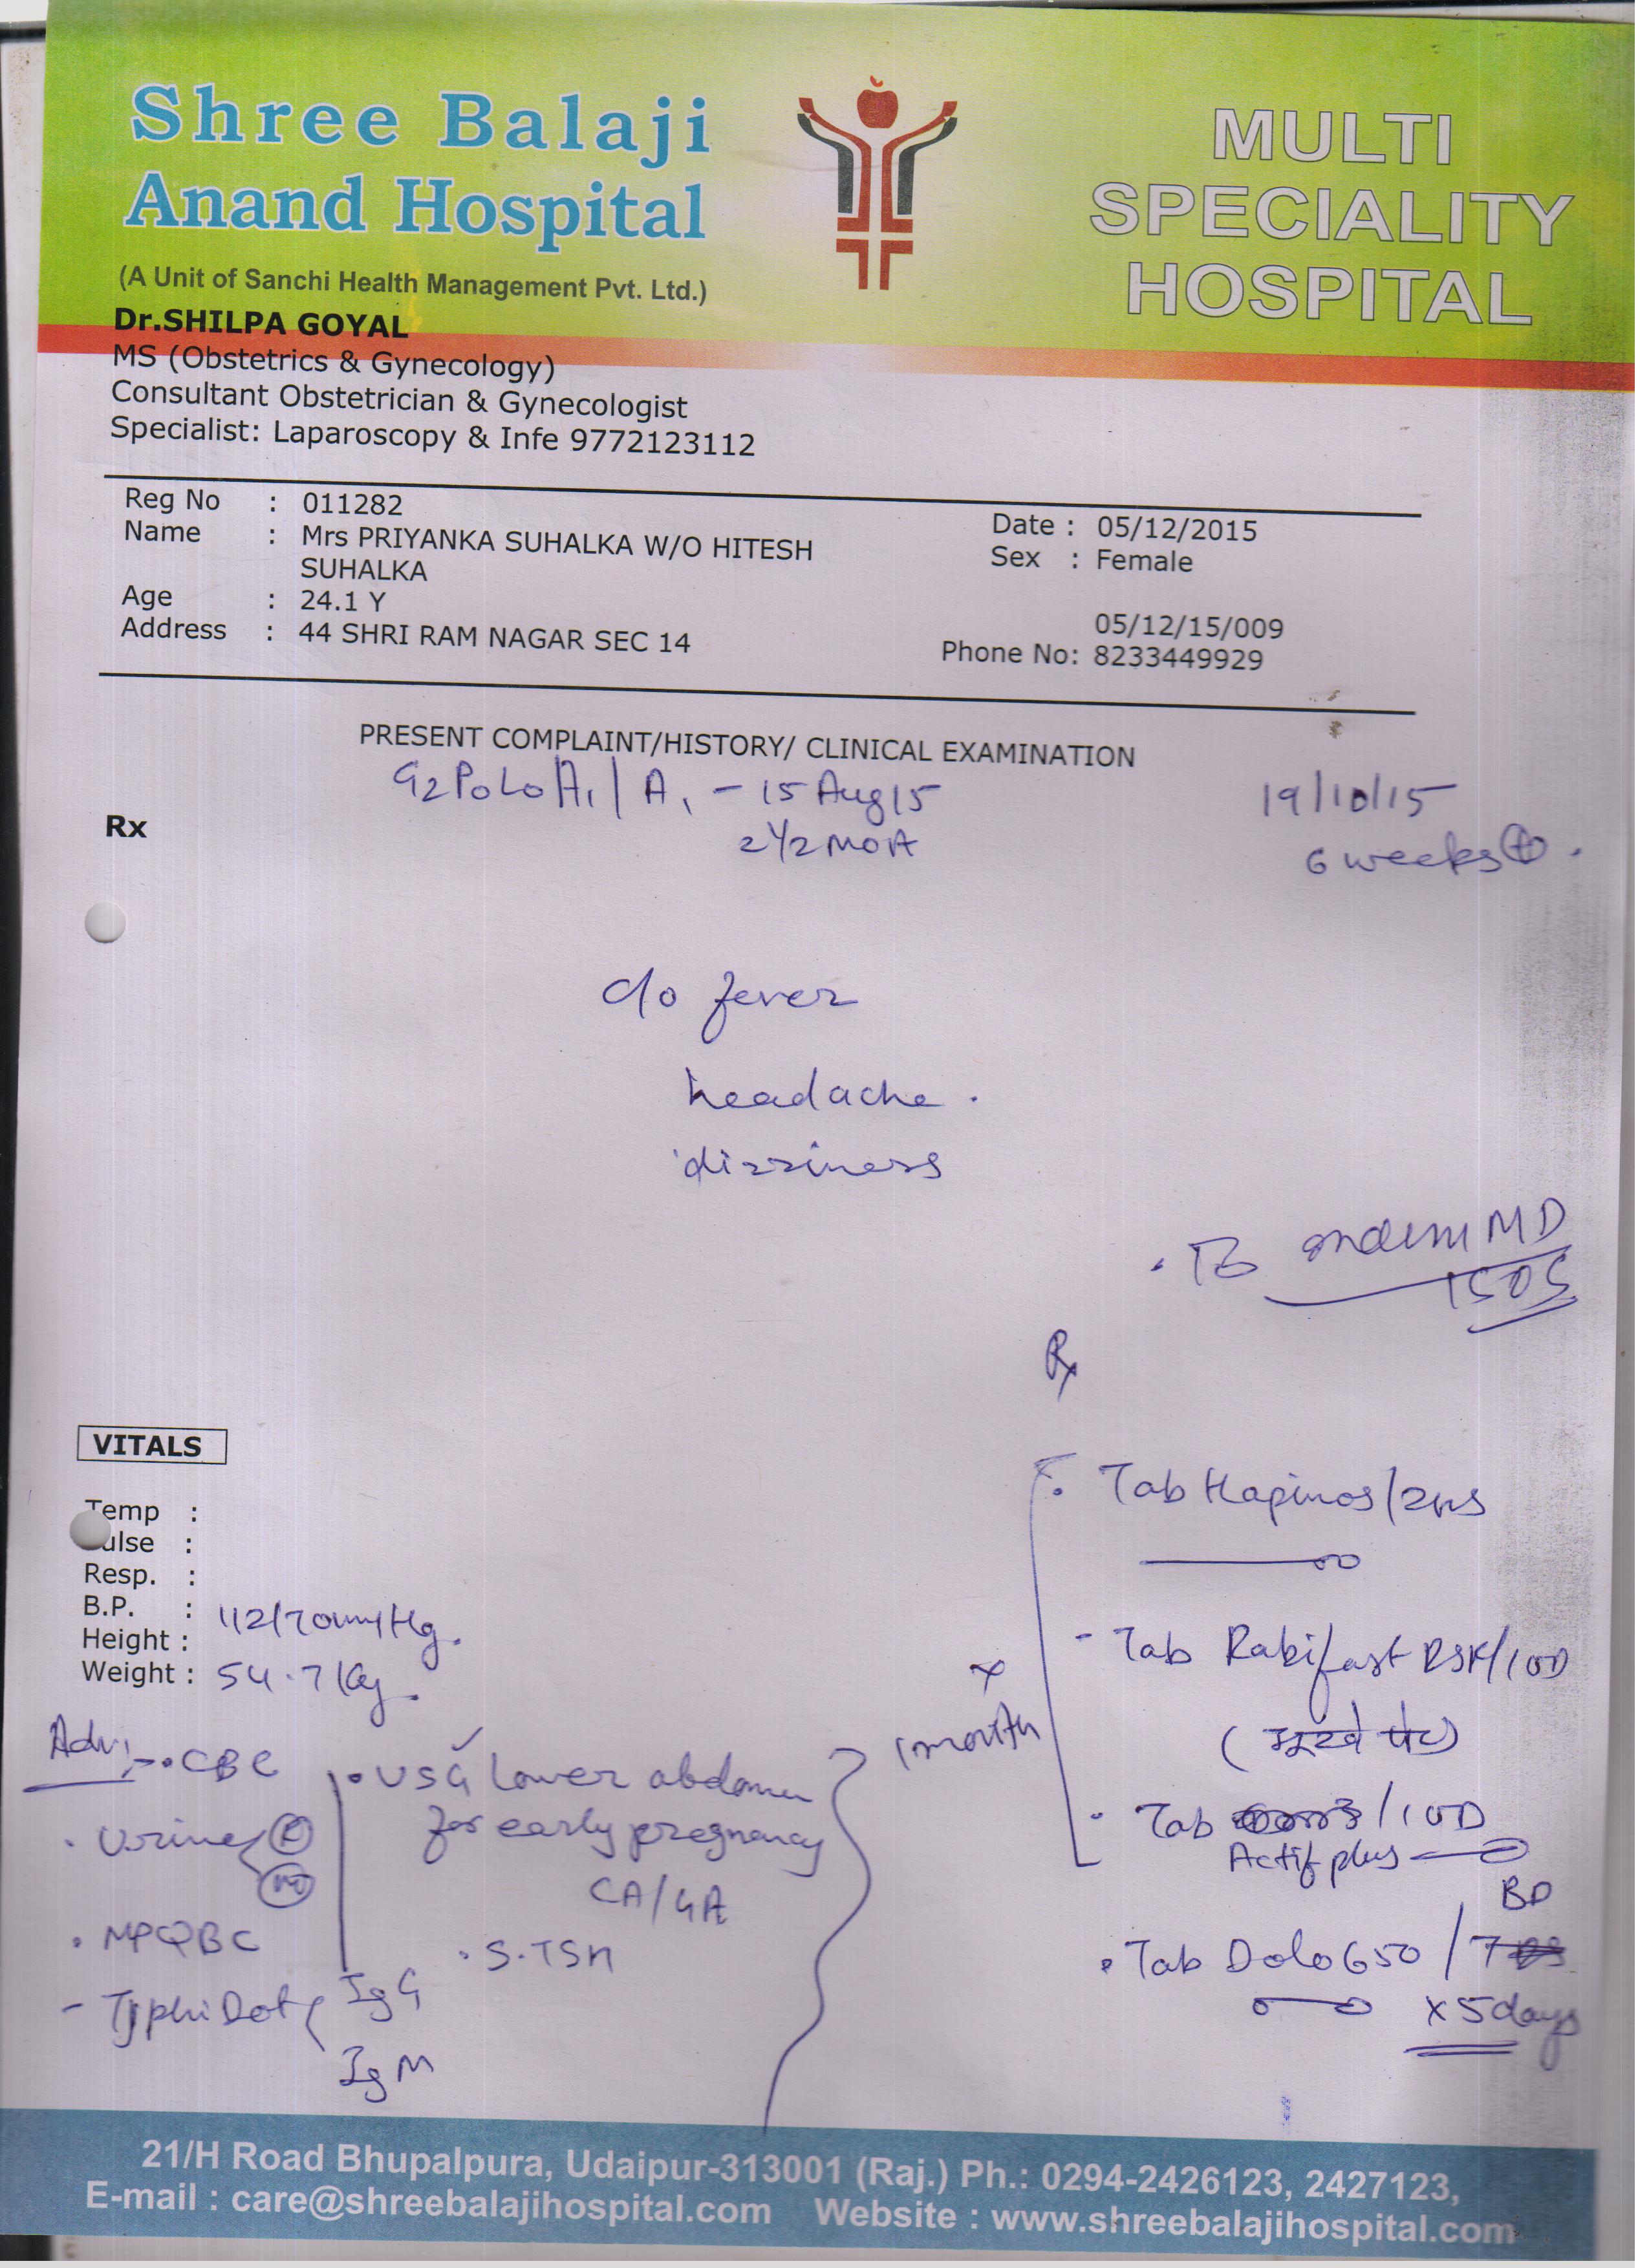 Shree Balaji
Anand Hospital
(A Unit of Sanchi Health Management Pvt. Ltd.)
MULTI
SPECIALITY
HOSPITAL
Dr.SHILPA GOYAL
MS (Obstetrics & Gynecology)
Consultant Obstetrician & Gynecologist
Specialist: Laparoscopy & Infe 9772123112
Reg No : 011282
Name : Mrs PRIYANKA SUHALKA W/O HITESH
SUHALKA
Age : 24.1 Y
Address : 44 SHRI RAM NAGAR SEC 14
Date : 05/12/2015
Sex : Female
05/12/15/009
Phone No: 8233449929
PRESENT COMPLAINT/HISTORY/ CLINICAL EXAMINATION
G2P0L0A1 | A1 - 15 Aug 15
2 1/2 MOA
19/10/15
6 weeks ⊕.
Rx
c/o fever
headache.
dizziness
MD
1SOS
Rx
Tab Hapinos/2HS
- Tab Rabifast DSR/1OD
(भूखे पेट)
· Tab /1OD
Actif plus
BD
· Tab Dolo 650 /
x 5 days
x
1 month
VITALS
Temp :
Pulse :
Resp. :
B.P. : 112/70mmHg.
Height :
Weight : 54.7 Kg.
Adv:- · CBC
· Urine R
M
· MPQBC
- TyphiDot IgG
IgM
· USG Lower abdomen
for early pregnancy
CA/GA
· S.TSH
21/H Road Bhupalpura, Udaipur-313001 (Raj.) Ph.: 0294-2426123, 2427123,
E-mail : care@shreebalajihospital.com Website : www.shreebalajihospital.com